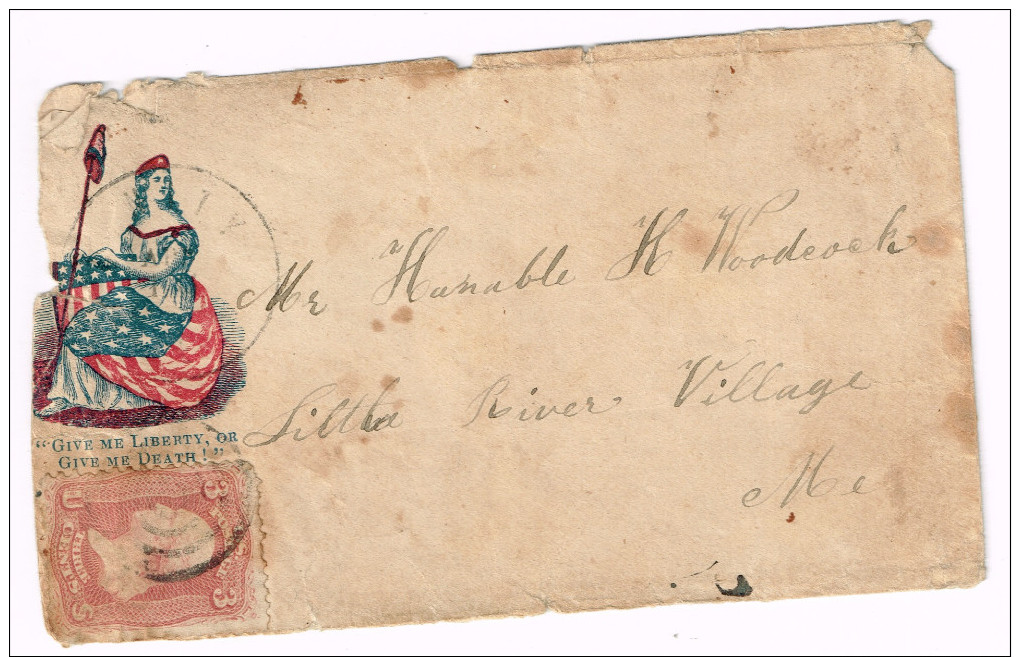 Mr Hanable H Woodcock
Little River Village
Me
"GIVE ME LIBERTY, OR
GIVE ME DEATH!"
U S
3 3